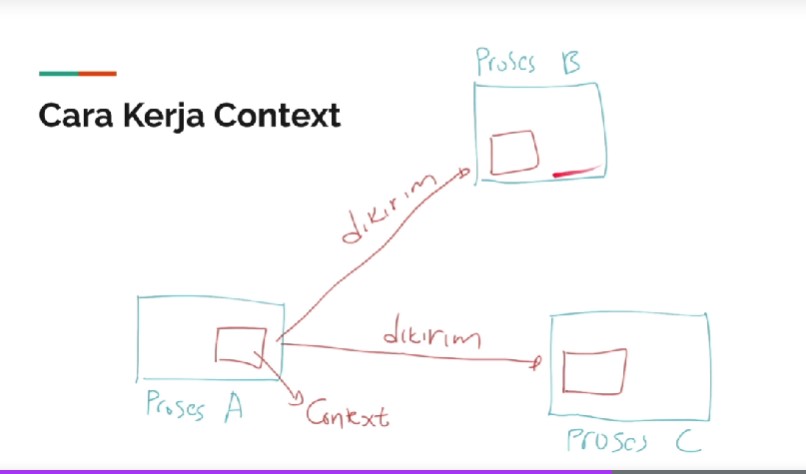 Cara Kerja Context
Proses B
dikirim
dikirim
Proses A
Context
Proses C